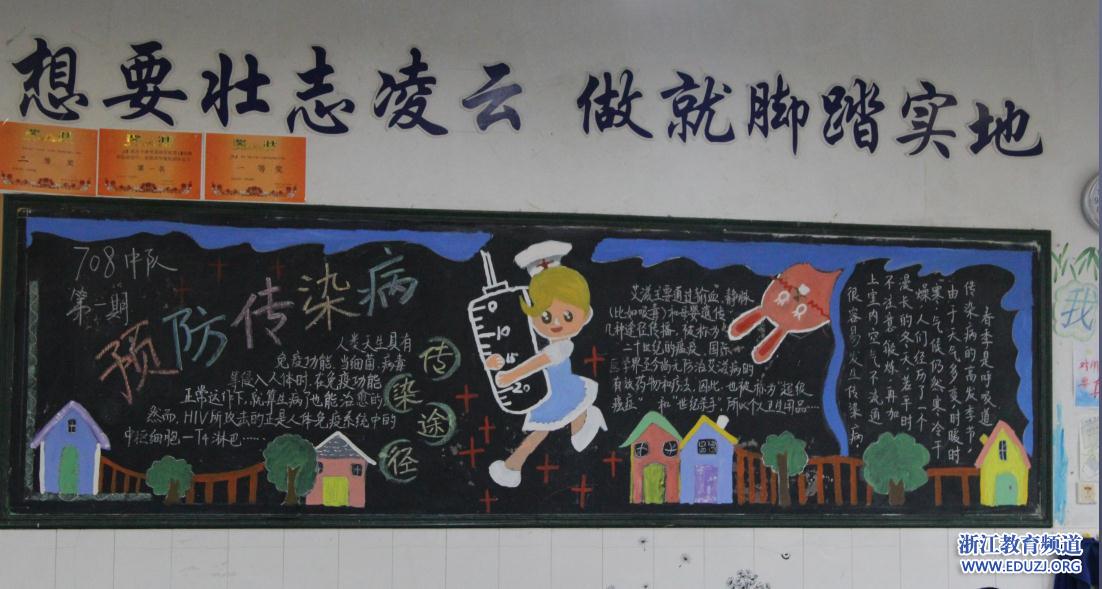 想要壮志凌云 做就脚踏实地
奖状
二等奖
奖状
第一名
奖状
一等奖
708中队
第一期
预防传染病
人类天生具有
免疫功能,当细菌、病毒
等侵入人体时,在免疫功能
正常运作下,就算生病了也能治愈的
然而,HIV所攻击的正是人体免疫系统中的
中枢细胞—T4淋巴……
传
染
途
径
0
10
15
20
艾滋主要通过输血、静脉
(比如吸毒)和母婴遗传
几种途径传播,被称为
二十世纪的瘟疫,国际
医学界至今尚无防治艾滋病的
有效药物和疗法,因此,也被称为"超级
癌症"和"世纪杀手"
春季是呼吸道
传染病的高发季节,
由于天气多变,时暖时
寒,气候仍然寒冷干
燥,人们经历了一个
漫长的冬天,若平时
不注意锻炼,再加
上室内空气不流通
很容易发生传染病
我
浙江教育频道
www.EDUZJ.ORG